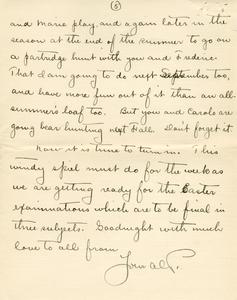 (5)
and Marie play, and again later in the
season at the end of the summer to go on
a partridge hunt with you and Frederic.
That I am going to do next September too,
and have more fun out of it than an all-
summer's loaf too. But you and Carole are
going bear hunting next Fall. Don't forget it.
Now it is time to turn in. This
windy spiel must do for the week as
we are getting ready for the Easter
examinations which are to be final in
three subjects. Goodnight with much
love to all from